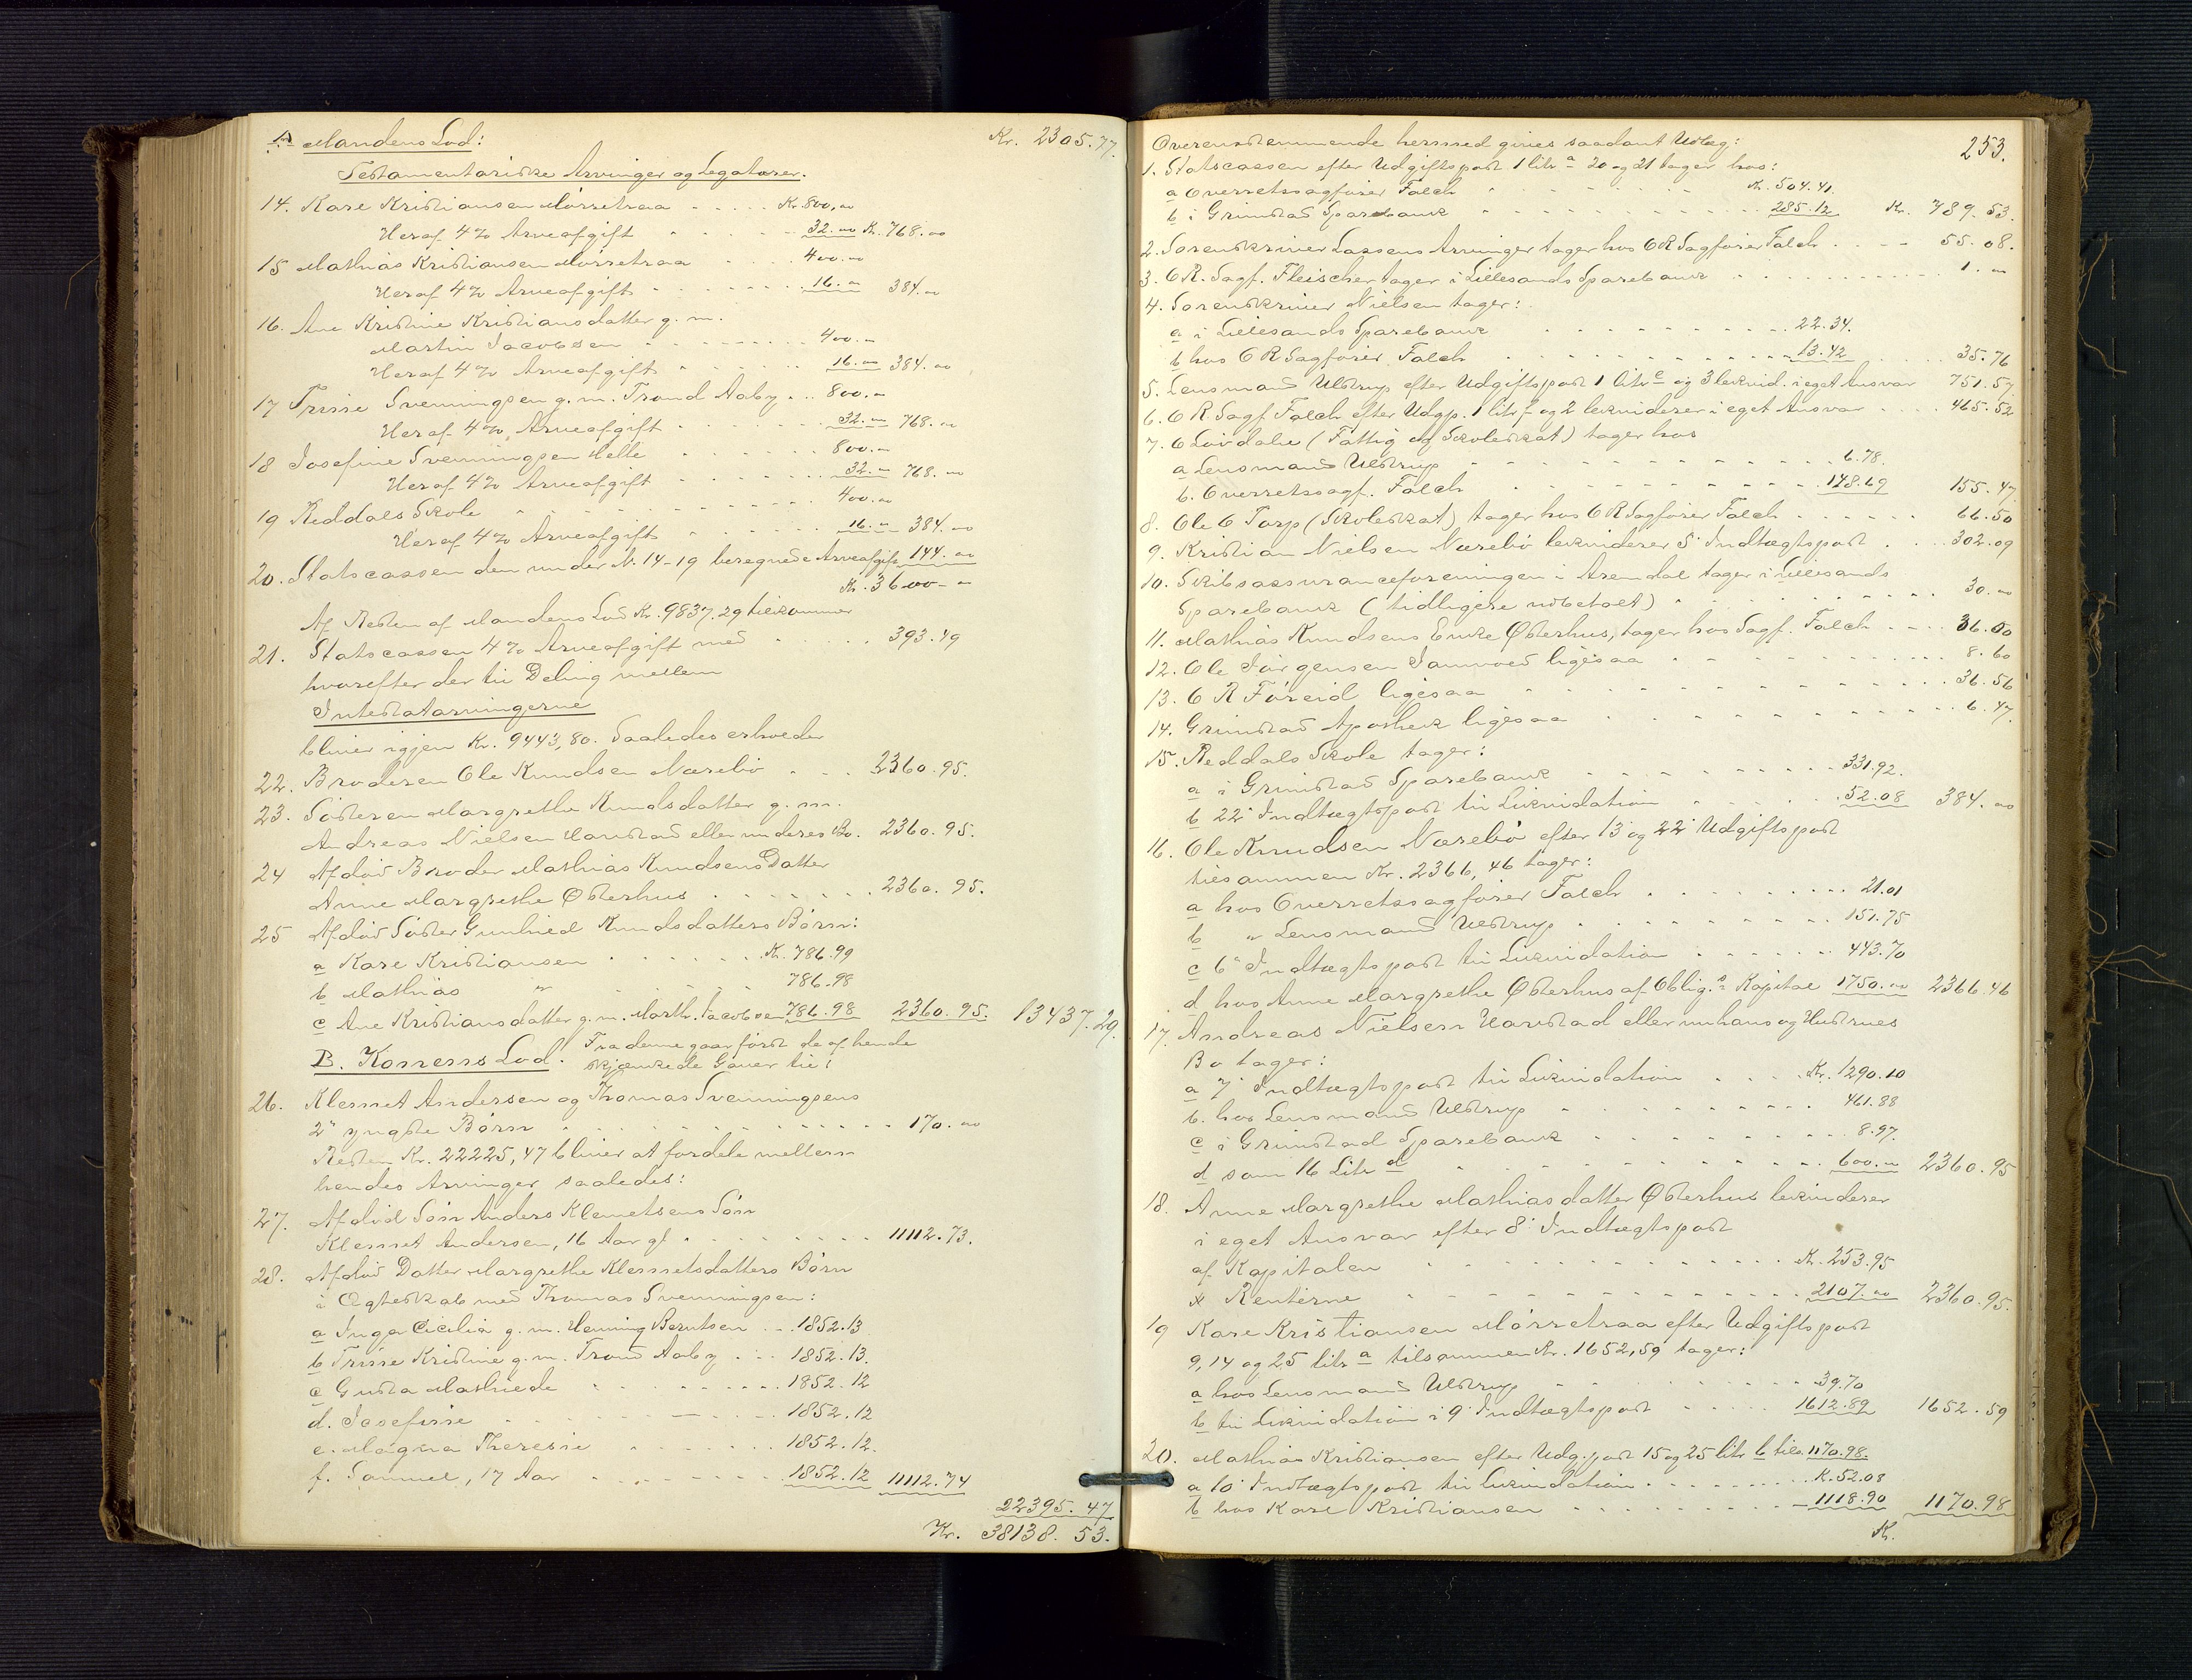 A Mandens Lod: Kr. 2305.77.
Testamentariske Arvinger og Legatarer.
14. Kare Kristiansen Mörretraa Kr. 800,00
Heraf 4% Arveafgift 32.00 Kr. 768.00
15 Mathias Kristiansen Mörretraa 400.00
Heraf 4% Arveafgift 16.00 384.00
16. Ane Kristine Kristiansdatter g. m.
Martin Jacobsen 400.00
Heraf 4% Arveafgift 16.00 384.00
17 Trine Svenningsen g. m. Trond Aaby 800.00
Heraf 4% Arveafgift 32.00 768.00
18 Josefine Svenningsen Helle 800.00
Heraf 4% Arveafgift 32.00 768.00
19 Reddals Skole 400.00
Heraf 4% Arveafgift 16.00 384.00
20. Statscassen den under N. 14-19 beregnede Arveafgift 144.00
Kr. 3600.00
Af Resten af Mandens Lod Kr. 9837.29 tilkommer
21. Statscassen 4% Arveafgift med 393.49
hvorefter der til Deling mellem
Intestatarvingerne
bliver igjen Kr. 9443,80. Saaledes erholder
22. Broderen Ole Knudsen Næsebö 2360.95.
23. Sösteren Margrethe Knudsdatter g. m.
Andreas Nielsen Harstad eller nu deres Bo. 2360.95.
24 Afdöd Broder Mathias Knudsens Datter
Anne Margrethe Østerhus 2360.95.
25 Afdöd Söster Gunhild Knudsdatters Börn:
a Kare Kristiansen Kr. 786.99
b Mathias " 786.98
c Ane Kristiansdatter g. m. Marth. Jacobsen 786.98 2360.95. 13437.29.
B. Konens Lod. Fra denne gaar först de af hende
skjænkede Gaver til:
26. Klemet Andersen og Thomas Svenningsens
2de yngste Börn 170.00
Resten Kr. 22225,47 bliver at fordele mellem
hendes Arvinger saaledes:
27. Afdöd Sön Anders Klemetsens Sön
Klemet Andersen, 16 Aar gl 11112.73.
28. Afdöd Datter Margrethe Klemetsdatters Börn
i Ægteskab med Thomas Svenningsen:
a Inga Cicilia g. m. Henning Berntsen 1852.13
b Trine Kristine g. m. Trond Aaby 1852.13.
c Gusta Mathilde 1852.12
d. Josefine 1852.12
e. Magna Theresie 1852.12.
f. Samuel, 17 Aar 1852.12 11112.74
22395.47
Kr. 38138.53.
253.
Overensstemmende hermed gives saadant Udlæg:
1. Statscassen efter Udgiftspost 1 litr a 20 og 21 tager hos:
a Overretssagförer Falch Kr. 504.41
b i Grimstad Sparebank 285.12 Kr. 789.53.
2. Sorenskriver Lassens Arvinger tager hos OR Sagförer Falch 55.08.
3. OR. Sagf. Fleischer tager i Lillesands Sparebank 1.00
4. Sorenskriver Nielsen tager:
a i Lillesands Sparebank 22.34.
b hos OR Sagförer Falch 13.42 35.76
5. Lensmand Ulstrup efter Udgiftspost 1 litr c og 3 likvid. i eget Ansvar 751.57
6. OR Sagf Falch efter Udgp. 1 litr f og 2 likviderer i eget Ansvar 465.52
7. O Lövdahl (Fattig og Skoleskat) tager hos
a Lensmand Ulstrup 6.78.
b. Overretssagf. Falch 148.69 155.47
8. Ole O Torp (Skoleskat) tager hos OR Sagförer Falch 66.50
9. Kristian Nielsen Næsebö likviderer 5te Indtægtspost 302.09
10. Skibsassuranceforeningen i Arendal tager i Lillesands
Sparebank (tidligere udbetalt) 30.00
11. Mathias Knudsens Enke Østerhus, tager hos Sagf. Falch 36.00
12. Ole Jörgensen Tamved ligesaa 8.60
13. O R Föreid ligesaa 36.56
14. Grimstad Apothek ligesaa 6.47.
15. Reddals Skole tager:
a i Grimstad Sparebank 331.92.
b 22de Indtægtspost til Likvidation 52.08 384.00
16. Ole Knudsen Næsebö efter 13 og 22 Udgiftspost
tilsammen Kr. 2366,46 tager:
a hos Overretssagförer Falch 21.01
b " Lensmand Ulstrup 151.75
c 6te Indtægtspost til Likvidation 443.70
d hos Anne Margrethe Østerhus af Oblig.s Kapital 1750.00 2366.46
17. Andreas Nielsen Harstad eller nu hans og Hustrues
Bo tager:
a 7de Indtægtspost til Likvidation Kr. 1290.10
b. hos Lensmand Ulstrup 461.88
c i Grimstad Sparebank 8.97.
d som 16 Litr d 600.00 2360.95
18. Anne Margrethe Mathiasdatter Østerhus likviderer
i eget Ansvar efter 8de Indtægtspost
af Kapitalen Kr. 253.95
" Renterne 2107.00 2360.95.
19 Kare Kristiansen Mörretraa efter Udgiftspost
9, 14 og 25 litr a tilsammen Kr. 1652,59 tager:
a hos Lensmand Ulstrup 39.70
b til Likvidation i 9de Indtægtspost 1612.89 1652.59
20. Mathias Kristiansen efter Udg.post 15 og 25 litr b tils. 1170.98.
a 10de Indtægtspost til Likvidation K. 52.08
b hos Kare Kristiansen 1118.90 1170.98
Kr.